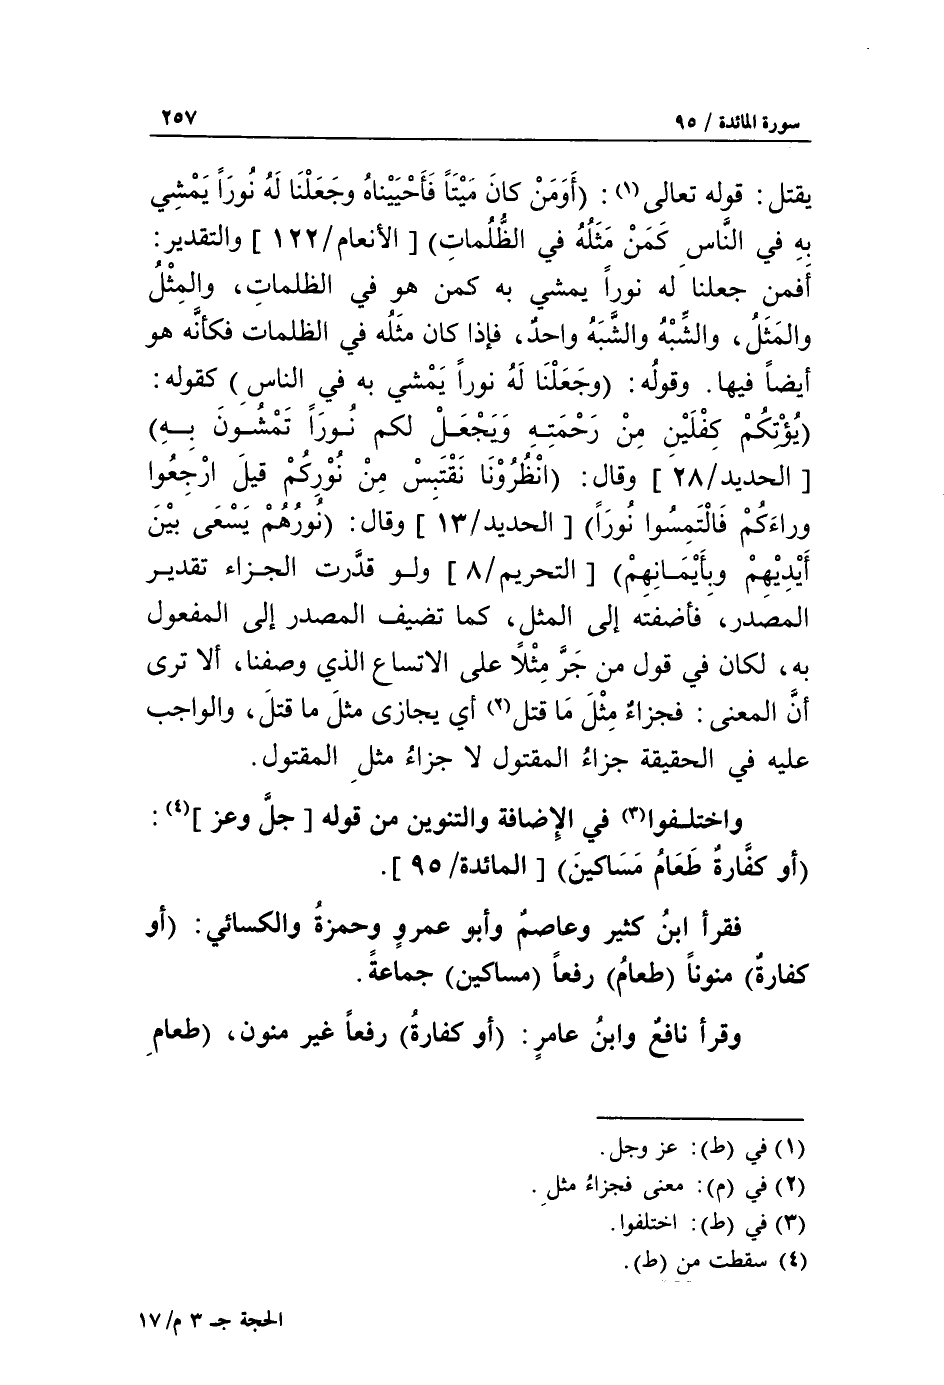 سورة المائدة / ٩٥
٢٥٧
يقتل: قوله تعالى(١): (أَوَمَنْ كانَ مَيْتاً فَأَحْيَيْناهُ وجَعَلْنَا لَهُ نُورَاً يَمْشِي
بِهِ في النَّاسِ كَمَنْ مَثَلُهُ في الظُّلُماتِ) [ الأنعام/١٢٢ ] والتقدير:
أفمن جعلنا له نوراً يمشي به كمن هو في الظلماتِ، والمِثْلُ
والمَثَلُ، والشِّبْهُ والشَّبَهُ واحدٌ، فإذا كان مثَلُه في الظلمات فكأنَّه هو
أيضاً فيها. وقولُه: (وجَعَلْنَا لَهُ نوراً يَمْشي به في الناسِ) كقوله:
(يُؤْتِكُمْ كِفْلَيْنِ مِنْ رَحْمَتِهِ وَيَجْعَلْ لكم نُورَاً تَمْشُونَ بِهِ)
[ الحديد/٢٨ ] وقال: (انْظُرُوْنَا نَقْتَبِسْ مِنْ نُوْرِكُمْ قيلَ ارْجِعُوا
وراءَكُمْ فَالْتَمِسُوا نُورَاً) [ الحديد/١٣ ] وقال: (نُورُهُمْ يَسْعَى بيْنَ
أَيْدِيْهِمْ وبِأَيْمَانِهِمْ) [ التحريم/٨ ] ولو قدَّرت الجزاء تقدير
المصدر، فأضفته إلى المثل، كما تضيف المصدر إلى المفعول
به، لكان في قول من جَرَّ مِثْلاً على الاتساع الذي وصفنا، ألا ترى
أنَّ المعنى: فجزاءٌ مِثْلَ مَا قتل(٢) أي يجازى مثلَ ما قتلَ، والواجب
عليه في الحقيقة جزاءُ المقتول لا جزاءُ مثلِ المقتول.
واختلفوا(٣) في الإضافة والتنوين من قوله [ جلَّ وعز ](٤):
(أو كفَّارةٌ طَعَامُ مَسَاكينَ) [ المائدة/ ٩٥ ].
فقرأ ابنُ كثير وعاصمٌ وأبو عمروٍ وحمزةُ والكسائي: (أو
كفارةٌ) منوناً (طعامُ) رفعاً (مساكين) جماعةً.
وقرأ نافعٌ وابنُ عامرٍ: (أو كفارةُ) رفعاً غير منون، (طعامِ
(١) في (ط): عز وجل.
(٢) في (م): معنى فجزاءُ مثلِ.
(٣) في (ط): اختلفوا.
(٤) سقطت من (ط).
الحجة جـ ٣ م/١٧